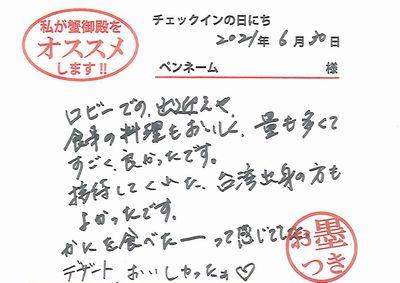 私が蟹御殿を
オススメ
します!!
チェックインの日にち
2021年 6月30日
ペンネーム 様
ロビーでの、出迎えや、
食事の料理もおいしく、量も多くて
すごく、良かったです。
接待してくれた、台湾出身の方も
よかったです。
かにを食べたーって感じでした。
お墨
つき
デザート、おいしかったぁ♡